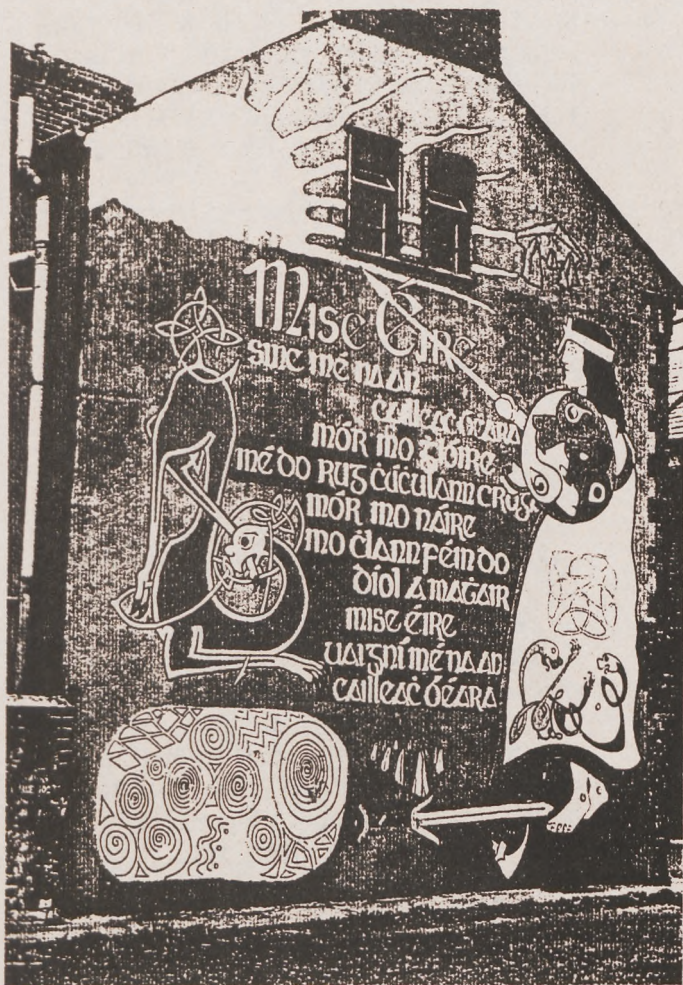 Mise Éire
sine mé na an
cailleaċ béara
mór mo ġlóire
mé do rug cúċulann
mór mo náire
mo ċlann féin do
díol a maṫair
mise éire
uaigní mé na an
cailleaċ béara